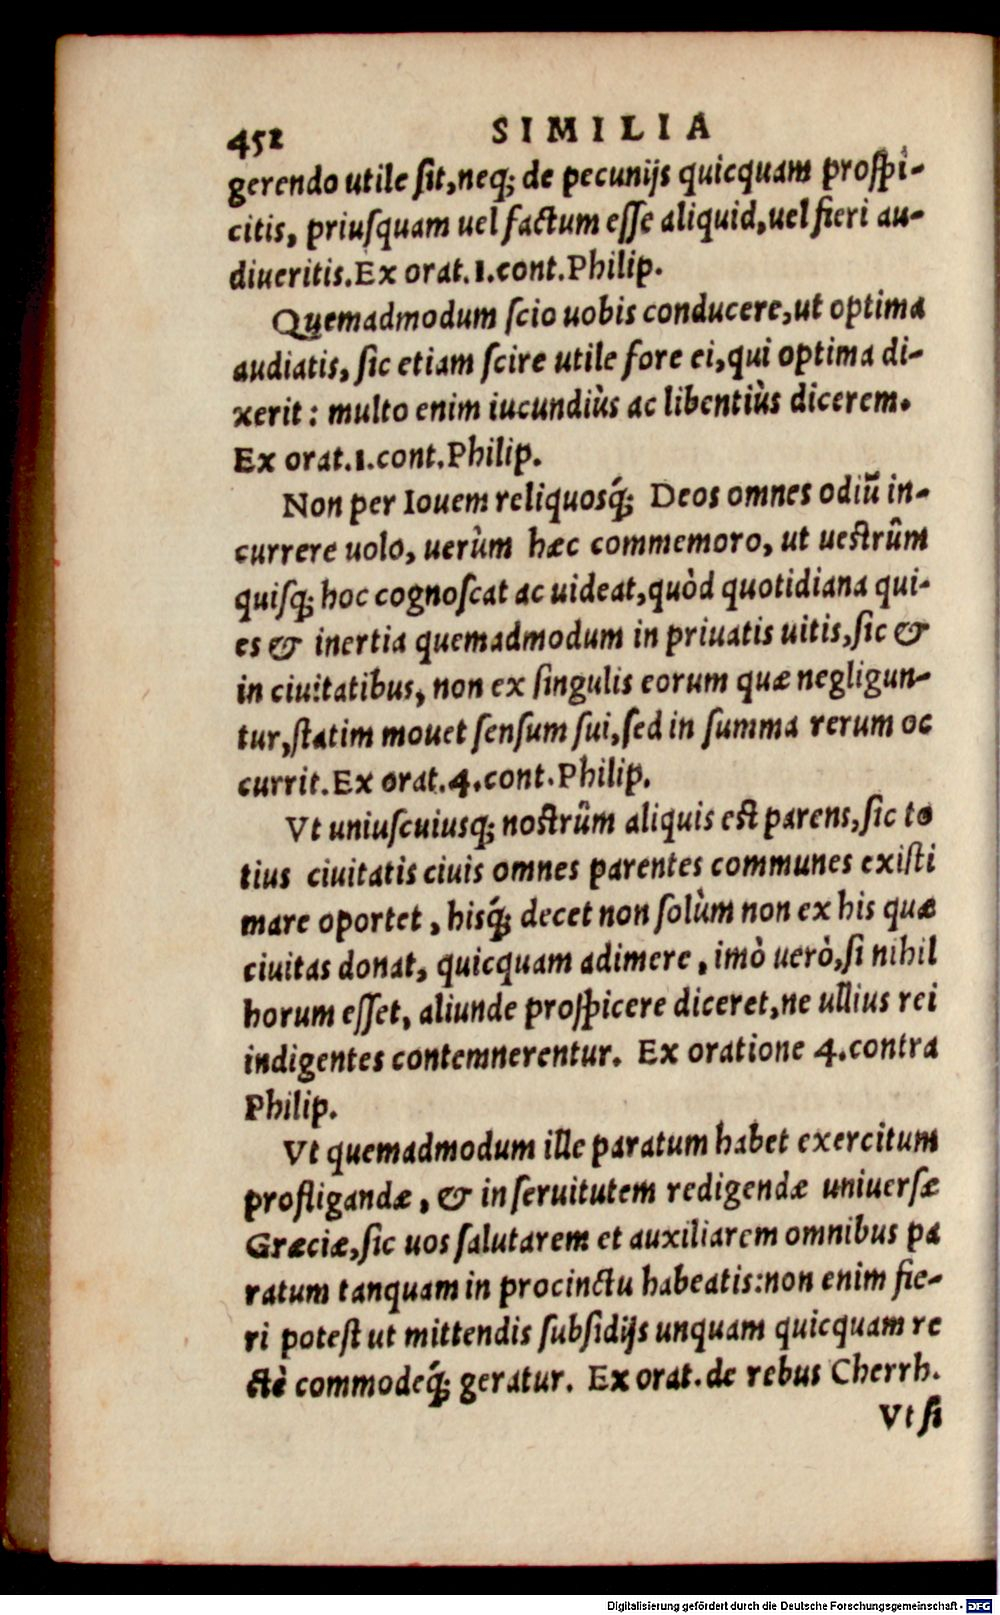 452 SIMILIA
gerendo utile ſit, neq; de pecunijs quicquam proſpi-
citis, priuſquam uel factum eſſe aliquid, uel fieri au-
diueritis. Ex orat. 1. cont. Philip.
Quemadmodum ſcio uobis conducere, ut optima
audiatis, ſic etiam ſcire utile fore ei, qui optima di-
xerit: multo enim iucundiùs ac libentiùs dicerem.
Ex orat. 1. cont. Philip.
Non per Iouem reliquosq́; Deos omnes odiũ in-
currere uolo, uerùm hæc commemoro, ut ueſtrûm
quiſq; hoc cognoſcat ac uideat, quòd quotidiana qui-
es & inertia quemadmodum in priuatis uitis, ſic &
in ciuitatibus, non ex ſingulis eorum quæ negligun-
tur, ſtatim mouet ſenſum ſui, ſed in ſumma rerum oc
currit. Ex orat. 4. cont. Philip.
Vt uniuſcuiusq; noſtrûm aliquis eſt parens, ſic to
tius ciuitatis ciuis omnes parentes communes exiſti
mare oportet, hisq́; decet non ſolùm non ex his quæ
ciuitas donat, quicquam adimere, imò uerò, ſi nihil
horum eſſet, aliunde proſpicere diceret, ne ullius rei
indigentes contemnerentur. Ex oratione 4. contra
Philip.
Vt quemadmodum ille paratum habet exercitum
profligandæ, & in ſeruitutem redigendæ uniuerſæ
Græciæ, ſic uos ſalutarem et auxiliarem omnibus pa
ratum tanquam in procinctu habeatis: non enim fie-
ri poteſt ut mittendis ſubſidijs unquam quicquam re
ctè commodeq́; geratur. Ex orat. de rebus Cherrh.
Vt ſi
Digitalisierung gefördert durch die Deutsche Forschungsgemeinschaft - DFG